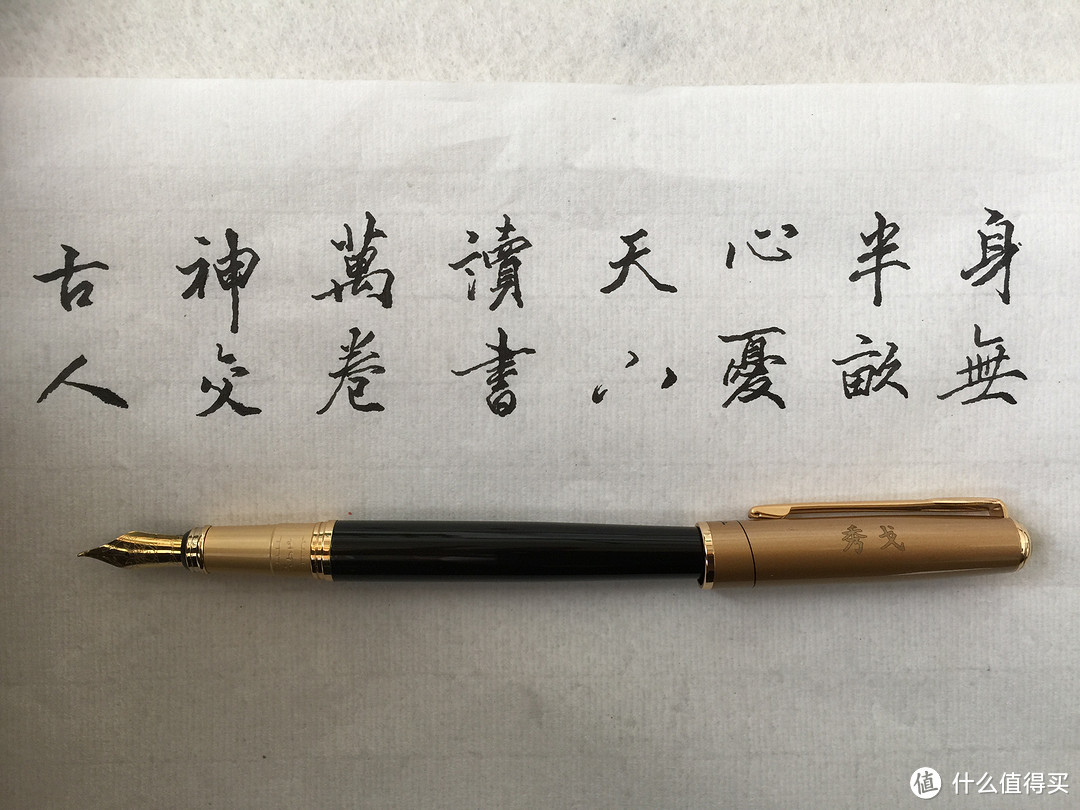 身無
半畝
心憂
天下
讀書
萬卷
神交
古人
秀戈
值 什么值得买